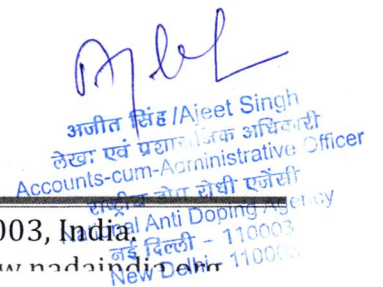 अजीत सिंह /Ajeet Singh
लेखा एवं प्रशासनिक अधिकारी
Accounts-cum-Administrative Officer
राष्ट्रीय डोप रोधी एजेंसी
National Anti Doping Agency
003, India.
नई दिल्ली – 110003
New Delhi - 110003